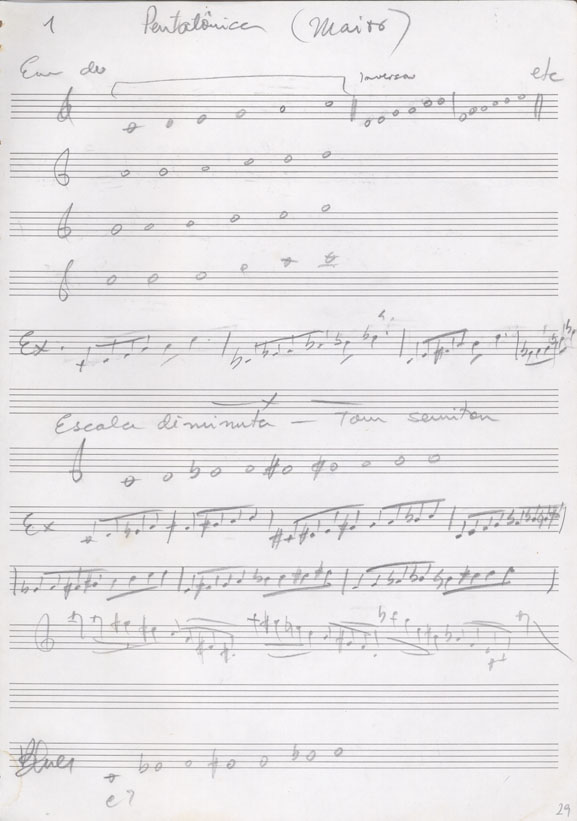 1 Pentatônica (Maior)
Em do
etc
Inversão
Ex.
Escala diminuta — Tom semiton
Ex
Blues
C7
29